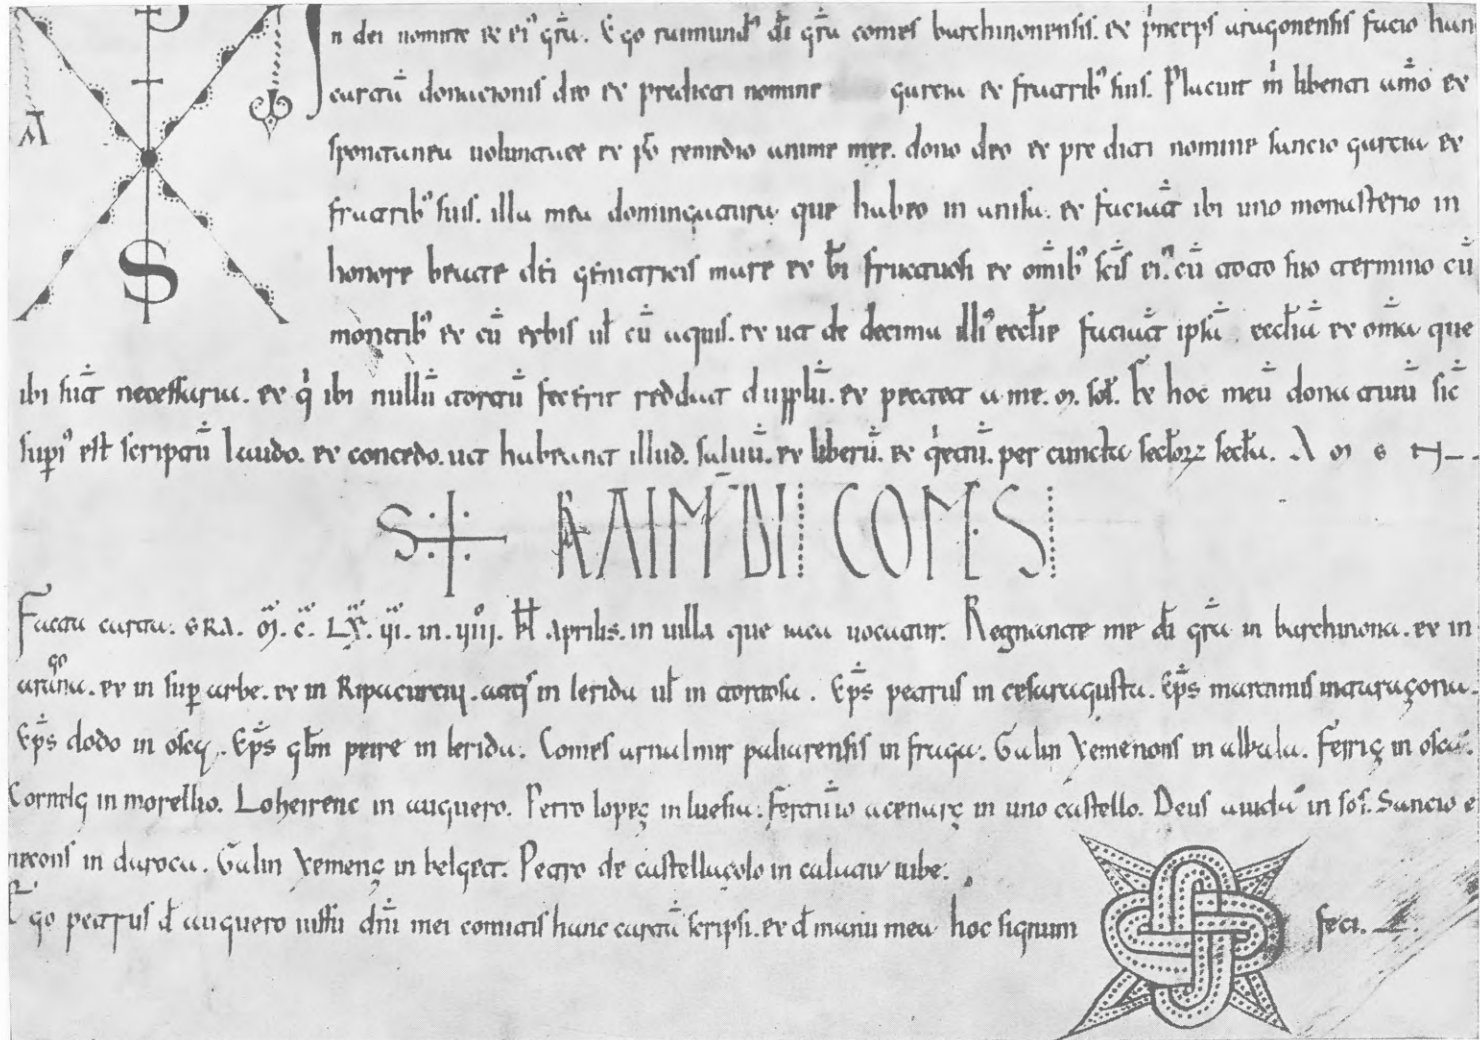 In dei nomine et ei᾽ gr̄a. Ego raimund᾽ d̄i gr̄a comes barchinonensis. et p̄nceps aragonensis facio han
cartā donacionis deo et predicti nomine garcia et fratrib᾽ suis. Placuit m̄ libenti amo et
spontanea voluntate et p̄ remedio anime mee. dono deo et predicti nomine sancio garcia et
fratrib᾽ suis. illa mea dominigatura que habeo in anisa. et faciāt ibi uno monasterio in
honore beate d̄ei genitricis marie et b̄i fructuosi et om̄ib᾽ sc̄is ei᾽. cū toto suo termino cū
montib᾽ et cū erbis ul̄ cū aquis. et ut de decima illi᾽ ecclē faciāt ipsā eccl̄iā et om̄a que
ibi sūt necessaria. et q̄ ibi nullū tortū fecerit reddat dupplū. et pectet a me. m. sol̄. Et hoc meū donativū sic̄
sup᾽i᾽ est scriptū laudo. et concedo. ut habeant illud. salvū. et liberū. et q̄etū. per cuncta sectorz secta. A m e N.
S + RAIM̄DI COMES
Facta carta. ERA. M. C. LX. III. in. IIII. kł aprilis. in villa que vocatur. Regnante me d̄i gr̄a in barchinona. et in
aragona. et in sup arbe. et in Ripacurcia. atq᾽ in lerida ul̄ in tortosa. Ep̄s petrus in cesaraugusta. Ep̄s martinus in taraçona.
Ep̄s dodo in osca. Ep̄s gl̄m peire in lerida. Comes arnalmir paliarensis in fraga. Galin Xemenons in albala. Ferriz in osca.
Cornelç in morellio. Loheirenc in auguero. Ferro lopeç in luesia. fortunio acenarç in uno castello. Deus aiuda in sos. Sancio e
necons in daroca. Galin Xemenç in belget. Petro de castellaçolo in calatau iube.
Ego petrus d̄ auguero iussu dn̄i mei comitis hanc cartā scripsi. et d̄ manu mea hoc signum feci.